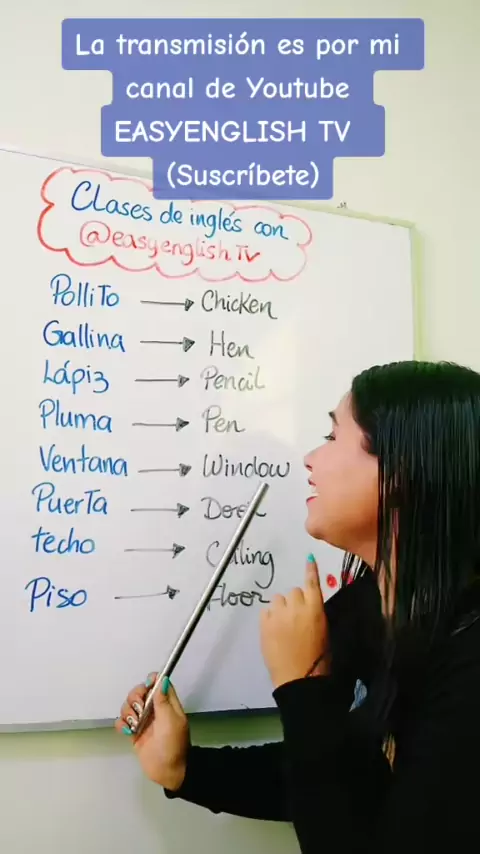 La transmisión es por mi
canal de Youtube
EASYENGLISH TV
(Suscríbete)
Clases de inglés con
@easyenglishTv
PolliTo → Chicken
Gallina → Hen
Lápiz → Pencil
Pluma → Pen
Ventana → Window
PuerTa → Door
techo →
Piso → Floor